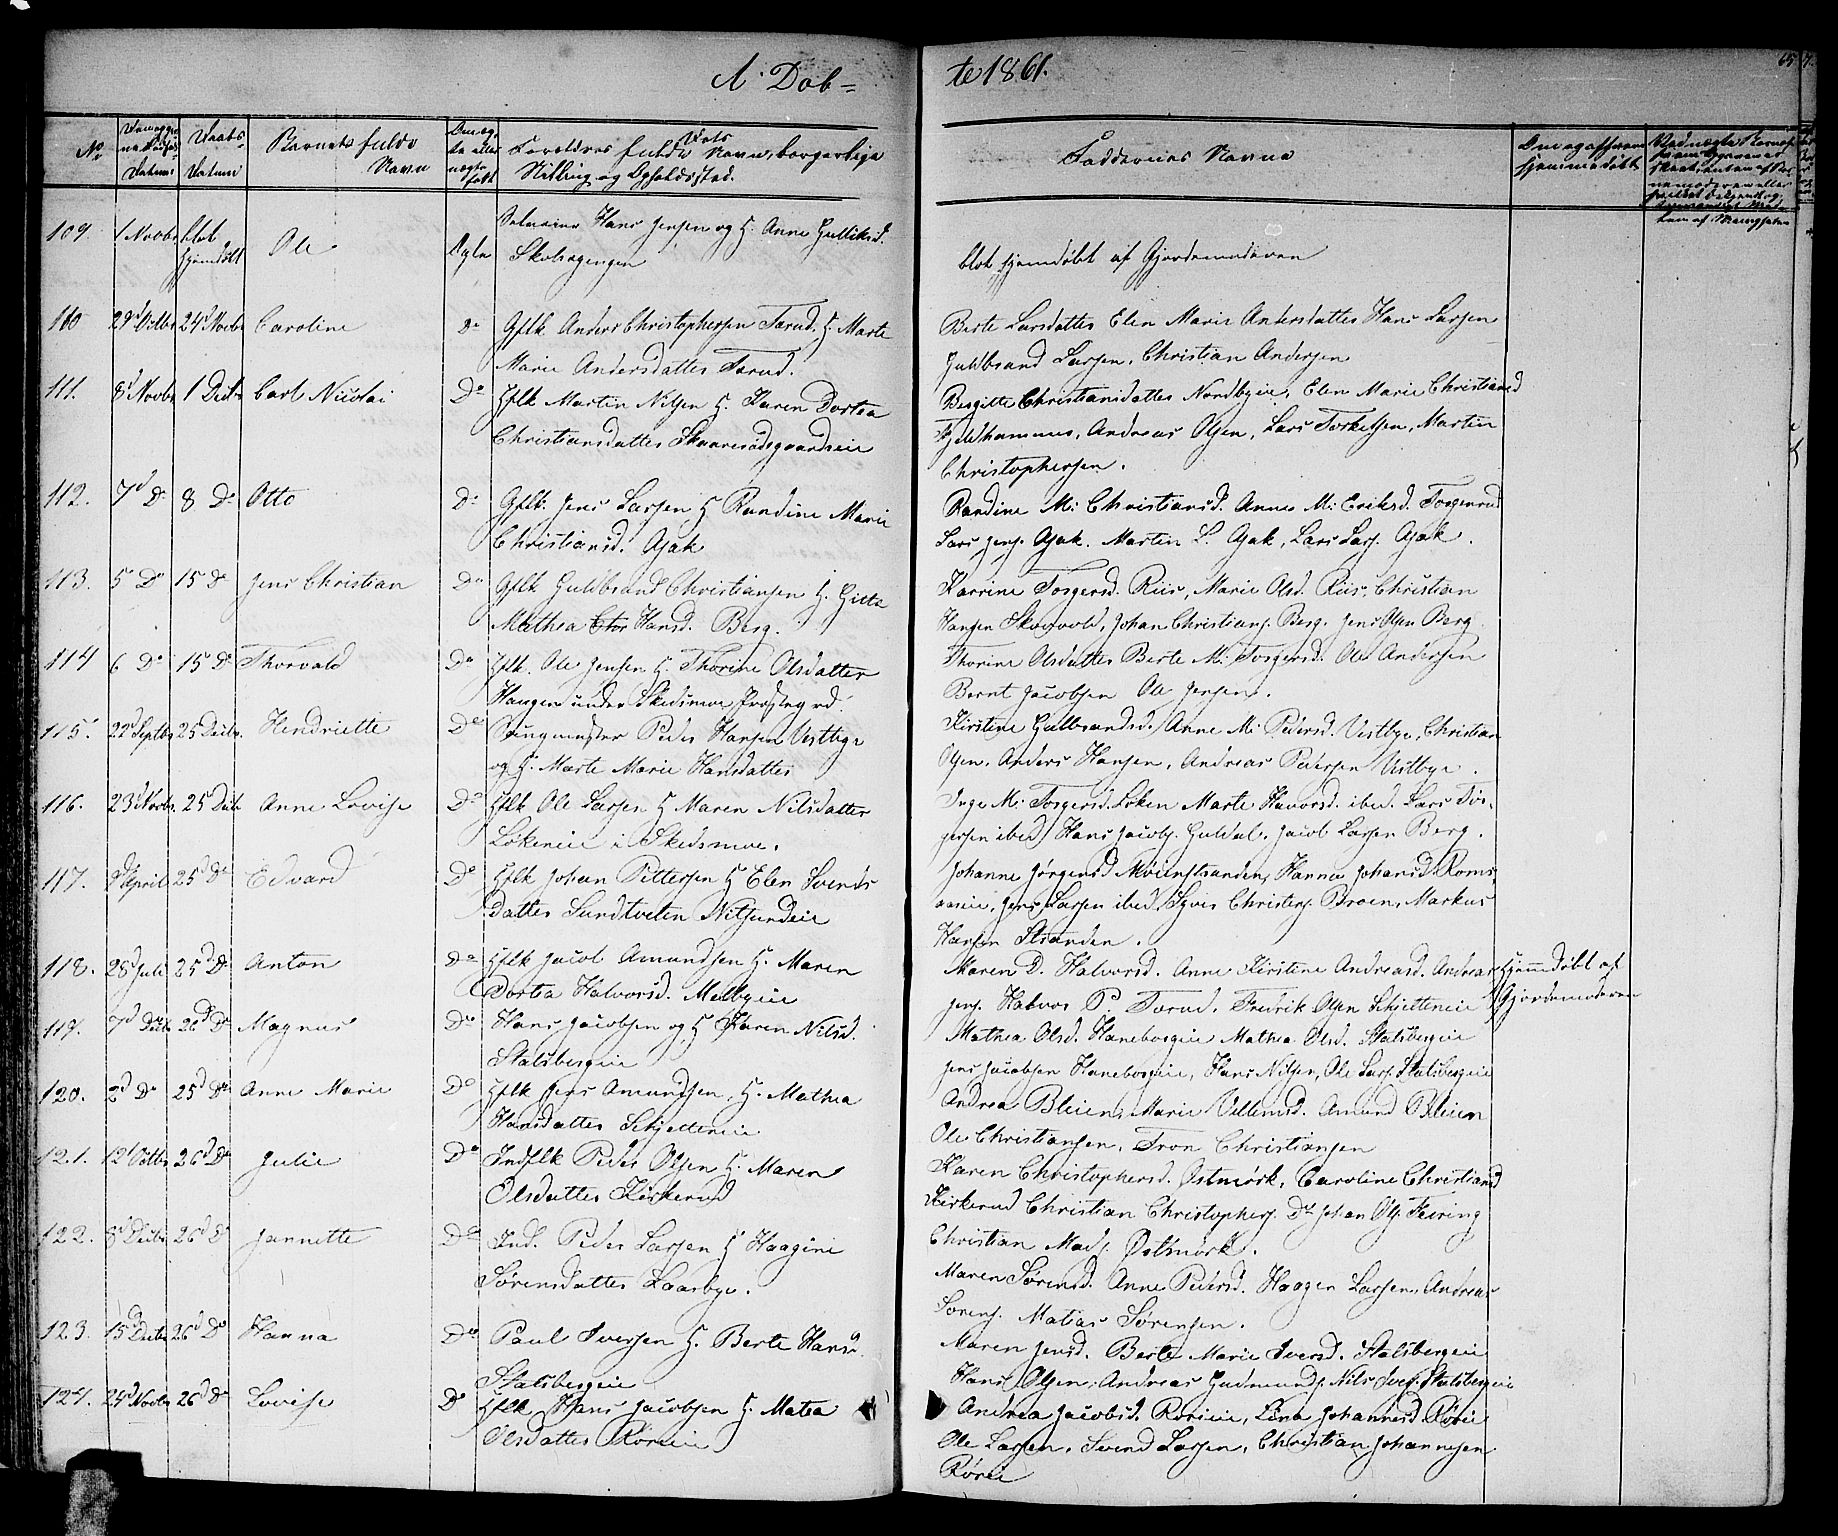 A. Døb=
te 1861.
No
Daabs Datum
Barnets fulde Navn
Forældres fulde Navn, borgerlige
Stilling og Opholdssted.
Faddernes Navne
109. 1 Novbr blot hjemdøbt Ole Ægte Selveier Hans Jensen og H. Anne Gulliksd.
blot hjemdøbt af Gjordemoderen
110 29d Octbr 24d Novbr Caroline Do Gflk Anders Christophersen Tærud. H. Marte
Marie Andersdatter Tærud.
Berte Larsdatter Elen Marie Andersdatter Hans Larsen
Guldbrand Larsen, Christian Andersen
111. 8d Novbr 1 Decbr Carl Nicolai Do Hflk Martin Nilsen H. Karen Dortea
Christiansdatter
Birgitte Christiansdatter Nordbyeie, Elen Marie Christiansd
Fjeldhammer, Andreas Olsen, Lars Torkelsen, Martin
Christophersen.
112. 7d Do 8 Do Otto Do Gflk. Jens Larsen H Randine Marie
Christiansd. Asak
Randine M. Christiansd. Anne M. Eriksd. Torgerud
Lars Jens. Asak. Martin L. Asak, Lars Lars. Asak.
113. 5 Do 15 Do Jens Christian Do Gflk Guldbrand Christiansen H. Gitte
Mathea Hansd. Berg.
Karrine Torgersd. Riis, Marie Olsd. Riis, Christian
Hansen Skovvold, Johan Christians. Berg. Jens Olsen Berg
114 6 Do 15 Do Thorvald Do Hflk. Ole Jensen H. Thorine Olsdatter
Haugen under Skedsmoe Præstegrd.
Thorine Olsdatter Berte M. Torgersd. Ole Andersen
Bernt Jacobsen Ole Jensen.
115. 22d Septbr 25 Decbr. Hendriette Do Peder Hansen Vestbye
og H. Marte Marie Hansdatter
Kirstine Gulbrandsd. Anne M. Pedersd. Vestbye, Christian
Olsen, Anders Hansen, Andreas Pedersen Vestbye.
116. 23d Novbr. 25 Decb Anne Lovise Do Hflk Ole Larsen H Maren Nilsdatter
Løkeneie i Skedsmoe.
Inge M. Torgersd. Løken Marte Havorsd. ibed. Lars Tor-
gersen ibed Hans Jacobs. Guldal. Jacob Larsen Berg.
117. April 25d Do Edvard Do Hflk Johan Pettersen H Elen Svends
datter Sundtveten Nitsundeie
Johanne Jørgensd Mouenstranden, Hanna Johansd. Roms
aaeie, Jens Larsen ibed, Syver Christens. Broen, Markus
Hansen Stranden.
118. 28d Juli 25d Do Anton Do Hflk Jacob Amundsen H. Maren
Dortea Halvorsd. Melbyeie
Maren D. Halvorsd. Anne Kirstine Andreasd. Andreas
Jens. Halvor P. Tærud, Fredrik Olsen Skjetteneie
Hjemdøbt af
Gjordemoderen
119. 7d Decb 26d Do Magnus Do Hans Jacobsen og H Karen Nilsd.
Stalsbergeie
Mathea Olsd. Haneborgeie Mathea Olsd. Stalsbergeie
Jens Jacobsen Haneborgeie, Hans Nilsen, Ole Lars. Stalsbergeie
120. 2d Do 25d Do Anne Marie Do Hflk Jens Amundsen, H. Mathea
Hansdatter Skjetteneie
Andrea Bleien, Marie Villumsd. Amund Bleien
Ole Christiansen, Tron Christiansen
121. 12d Octbr 26d Do Julie Do Indflk Peder Olsen H. Maren
Olsdatter Kirkerud
Karen Christophersd. Østmørk, Caroline Christiansd
Kirkerud Christian Christophers. Do Johan Ols. Feiring
Christian Mads. Østmørk.
122. 8d Decbr 26d Do Jannette Do Ind. Peder Larsen H Haagine
Sørensdatter Laasbye.
Maren Sørensd. Anne Pedersd. Haagen Larsen, Andreas
Sørens. Matias Sørensen.
123. 15d Decbr 26d Do Hanna Do Paul Iversen H. Berte Hansd.
Stalsbergeie
Maren Jensd. Berte Marie Iversd. Stalsbergeie
Hans Olsen, Andreas Gudmunds. Nils Ivers. Stalsbergeie
124. 24d Novbr 26d Do Lovise Do Hflk Hans Jacobsen H. Matea
Olsdatter Røreie
Andrea Jacobsd. Røreie, Lina Johannesd. Røreie
Ole Larsen, Svend Larsen, Christian Johannesen
Røreie